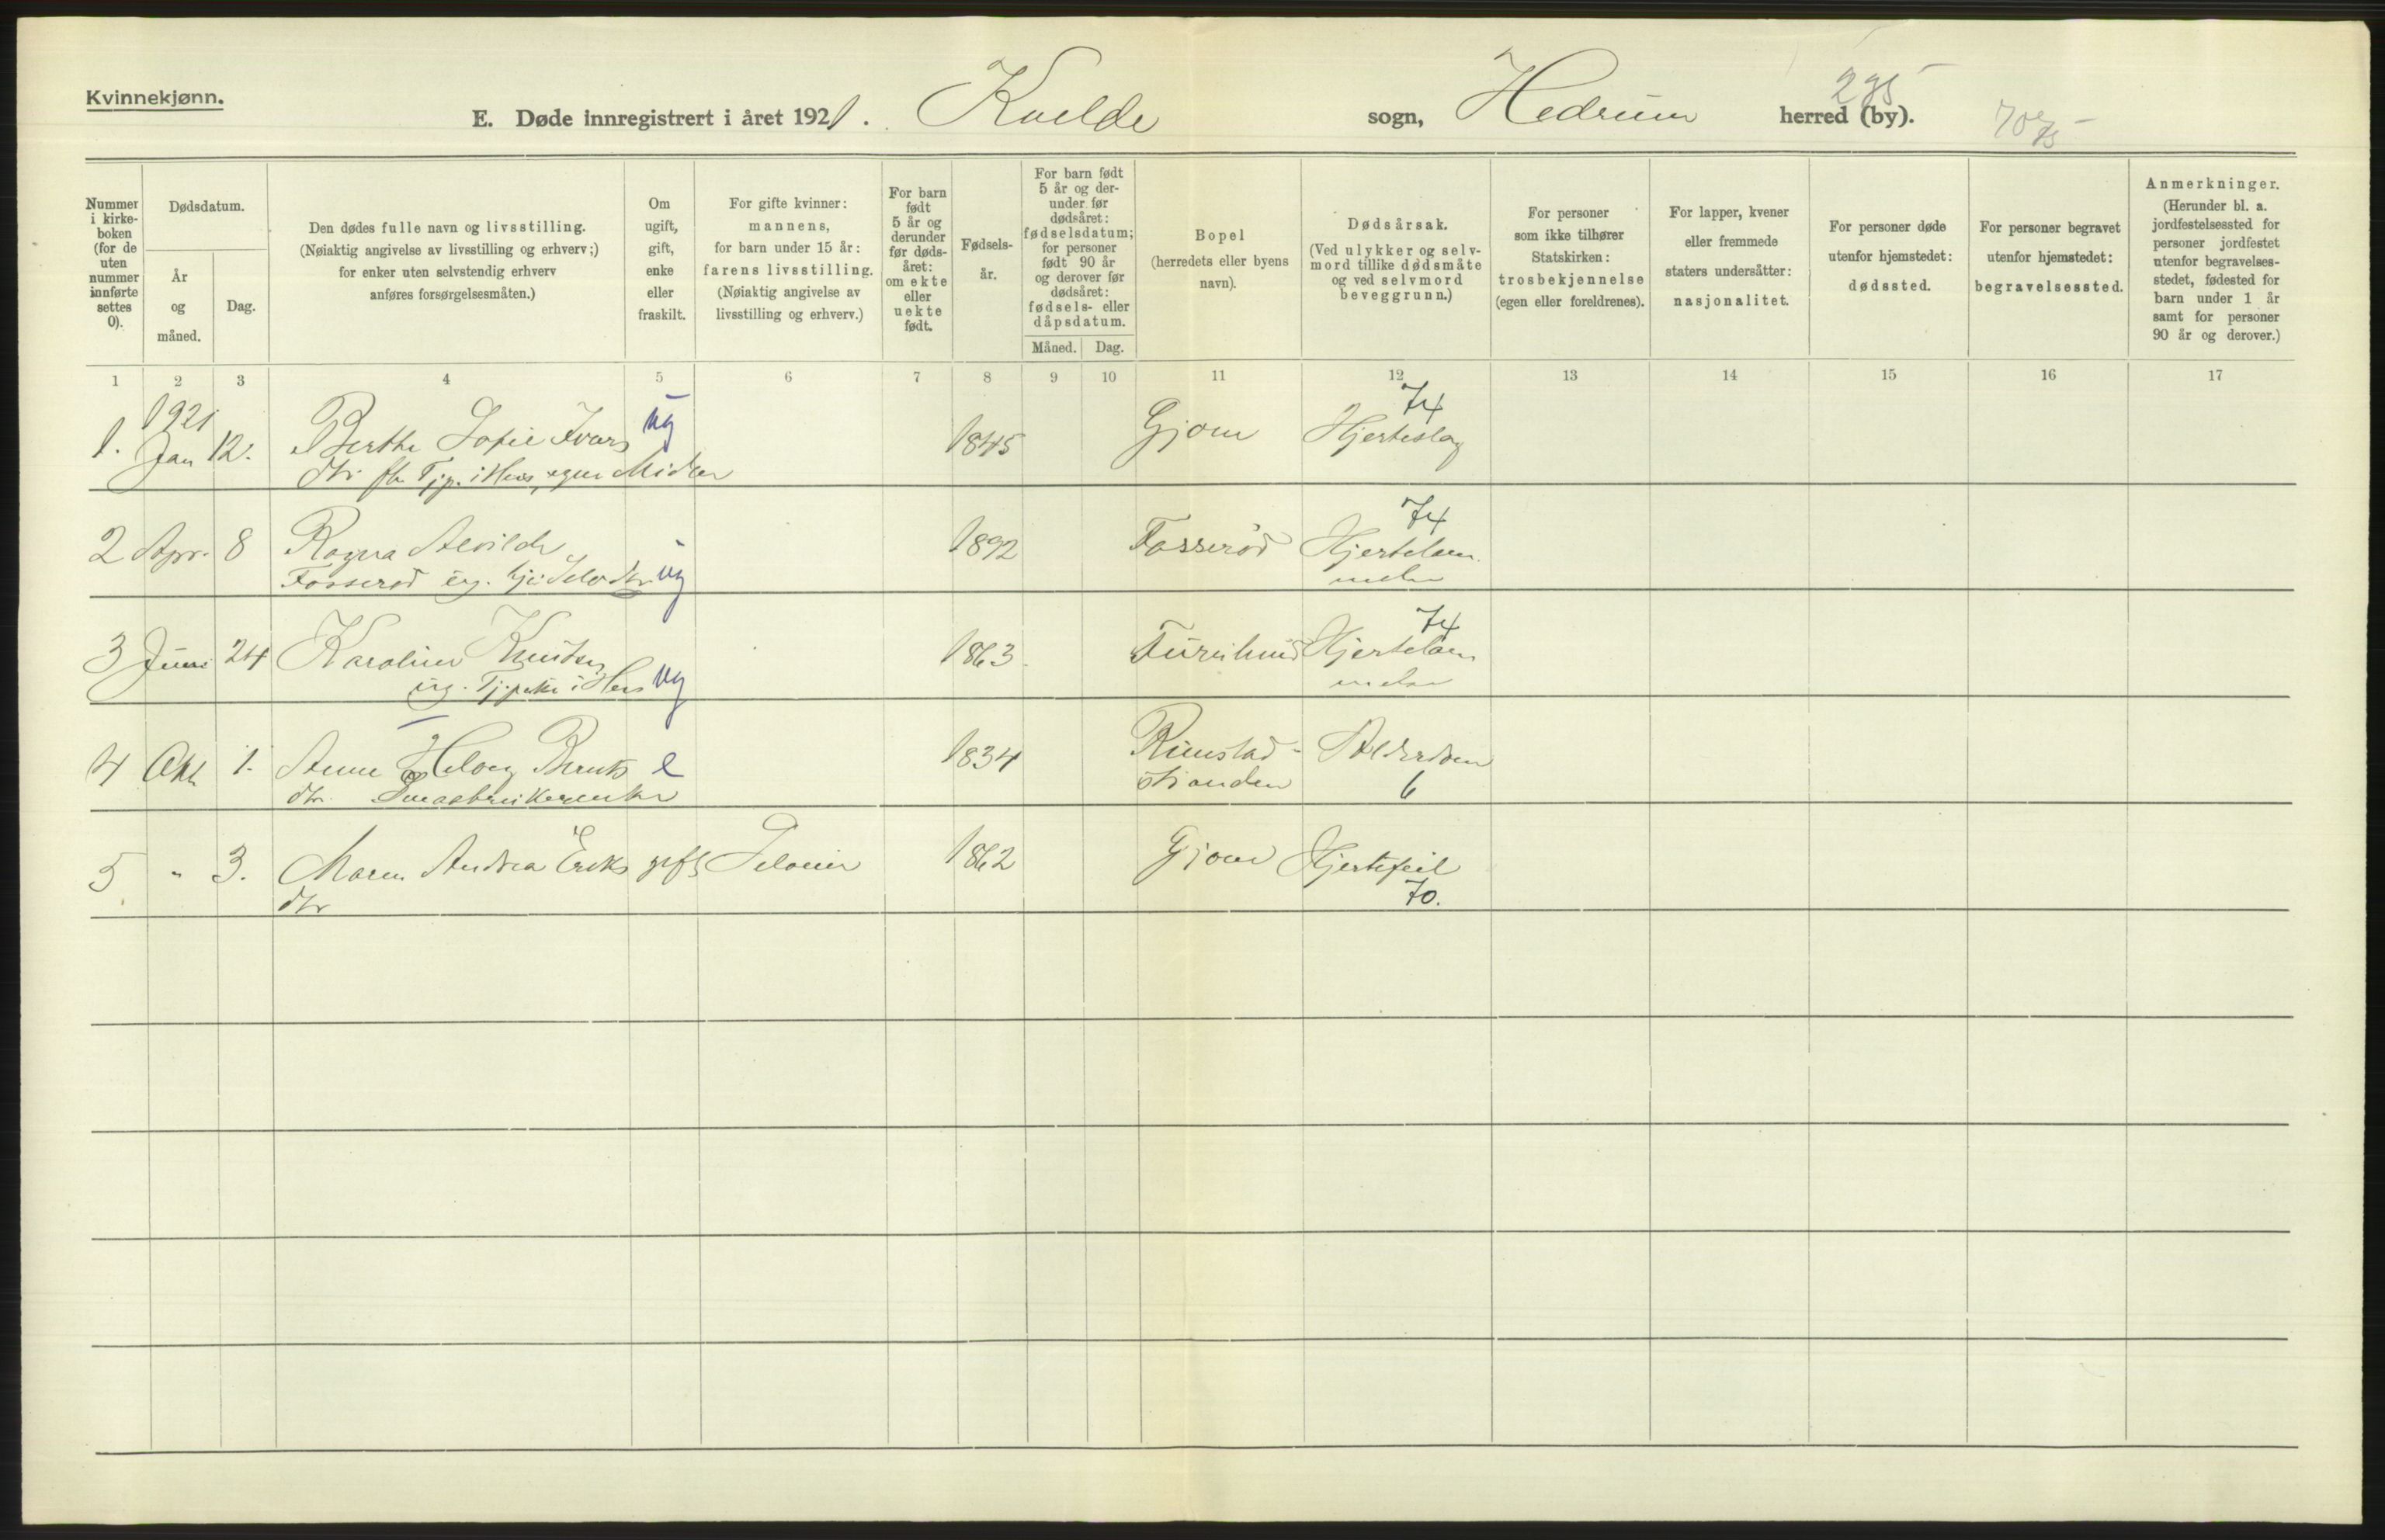 Kvinnekjønn.
E. Døde innregistrert i året 1921. Kvelde sogn, Hedrum herred (by).
235
Nummer i kirkeboken (for de uten nummer innførte settes 0).
Dødsdatum.
År og måned.
Dag.
Den dødes fulle navn og livsstilling. (Nøiaktig angivelse av livsstilling og erhverv;) for enker uten selvstendig erhverv anføres forsørgelsesmåten.)
Om ugift, gift, enke eller fraskilt.
For gifte kvinner: mannens, for barn under 15 år: farens livsstilling. (Nøiaktig angivelse av livsstilling og erhverv.)
For barn født 5 år og derunder før dødsåret: om ekte eller uekte født.
Fødselsår.
For barn født 5 år og derunder før dødsåret: fødselsdatum; for personer født 90 år og derover før dødsåret: fødsels- eller dåpsdatum.
Måned. Dag.
Bopel (herredets eller byens navn).
Dødsårsak. (Ved ulykker og selvmord tillike dødsmåte og ved selvmord beveggrunn.)
For personer som ikke tilhører Statskirken: trosbekjennelse (egen eller foreldrenes).
For lapper, kvener eller fremmede staters undersåtter: nasjonalitet.
For personer døde utenfor hjemstedet: dødssted.
For personer begravet utenfor hjemstedet: begravelsessted.
Anmerkninger. (Herunder bl. a. jordfestelsessted for personer jordfestet utenfor begravelsesstedet, fødested for barn under 1 år samt for personer 90 år og derover.)
1 2 3 4 5 6 7 8 9 10 11 12 13 14 15 16 17
1921 74
1. Jan 12. Berthe Sofie Ivars ug 1845 Gjone Hjerteslag
dtr fh. Tjp. i Hus, egne Midler
74
2 Apr. 8 Ragna Alvilde 1892 Fosserød Hjertelam
Fosserød ug. Gj. Selv dtr. ug melse
74
3 Juni 24 Karoline Knutsen 1863 Hjertelam
ug. Tj.pike i Hus ug melse
4 Okt 1. Anne Helvig Bernts e 1834 Rimstad- Alderdom
dtr. Småbrukerenke stranden 6
5 " 3. Maren Andrea Eriks gift 1862 Gjone Hjertefeil
dtr 70.